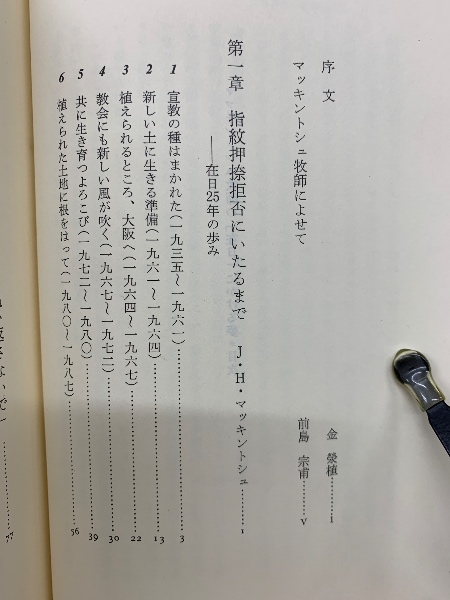 序文 金 滎植……i
マッキントシュ牧師によせて 前島 宗甫……v
第一章 指紋押捺拒否にいたるまで J・H・マッキントシュ……1
――在日25年の歩み
1 宣教の種はまかれた(一九三五〜一九六一)……3
2 新しい土に生きる準備(一九六一〜一九六四)……13
3 植えられるところ、大阪へ(一九六四〜一九六七)……22
4 教会にも新しい風が吹く(一九六七〜一九七二)……30
5 共に生き育つよろこび(一九七二〜一九八〇)……39
6 植えられた土地に根をはって(一九八〇〜一九八七)……56
返さないで」……77